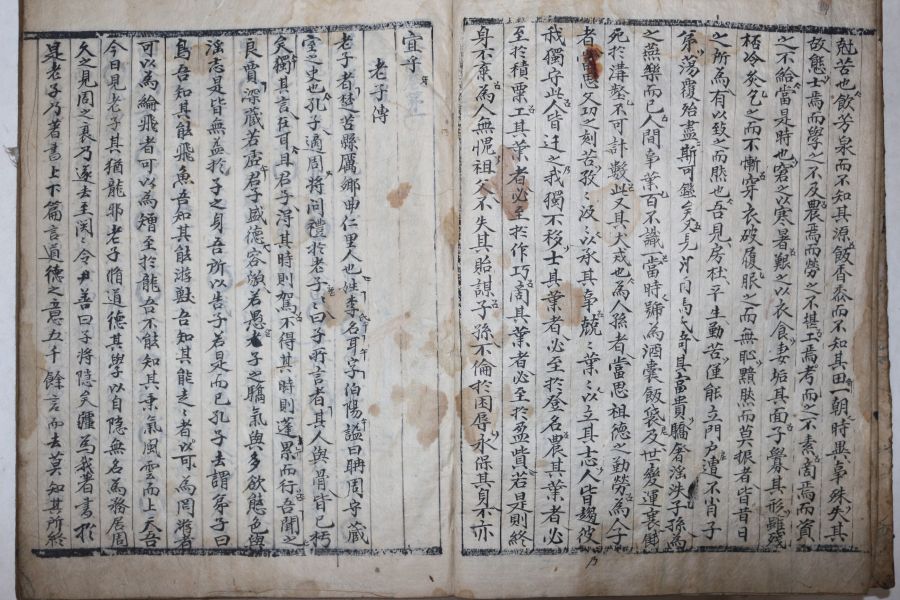 尅苦也飮芳泉而不知其源飯香黍而不知其田一朝時異事殊失其
故態士焉而學之不及農焉而勞之不堪工焉考而之不素啇焉而資
之不給當是時也窘之以寒暑艱之以衣食妻垢其面子釁其形雖殘
杯冷炙乞之而不慚穿衣破履服之而無恥黯然而莫振者皆昔日
之所為有以致之而然也吾見房杜平生勤苦運能立門戶遭不肖子
弟蕩覆殆盡斯可鑑矣又見河南馬氏其富貴驕奢淫泆子孫為
之燕樂而已人間事業百不識一當時號為酒囊飯袋及世變運衰餓
死於溝壑不可計數此又其大戒也為人孫者當思祖德之勤勞為人子
者當思父功之刻苦孜々汲々以承其事兢々業々以立其志人皆趨彼
我獨守此人皆迁之我獨不移士其業者必至於登名農其業者必
至於積粟工其業者必至於作巧啇其業者必至於盈貲若是則終
身不棄為人無愧祖父不失其貽謀子孫不倫於困辱永保其身不亦
宜乎
老子傳
老子者楚苦縣厲鄕曲仁里人也姓李名耳字伯陽諡曰聃周守藏
室之史也孔子適周將問禮於老子々曰子所言者其人與骨皆已朽
矣獨其言在耳且君子淂其時則駕不得其時則蓬累而行吾聞之
良賈深藏若虛君子盛德容貌若愚去子之驕氣與多欲態色與
淫志是皆無益於子之身吾所以告子若是而已孔子去謂弟子曰
鳥吾知其能飛魚吾知其能游獸吾知其能走々者以可為罔游者
可以為綸飛者可以為矰至於龍吾不能知其乘風雲而上天吾
今日見老子其猶龍耶老子脩道德其學以自隱無名為務居周
久之見周之衰乃遂去至関々令尹喜曰子將隱矣彊為我著書於
是老子乃著書上下篇言道德之意五千餘言而去莫知其所終